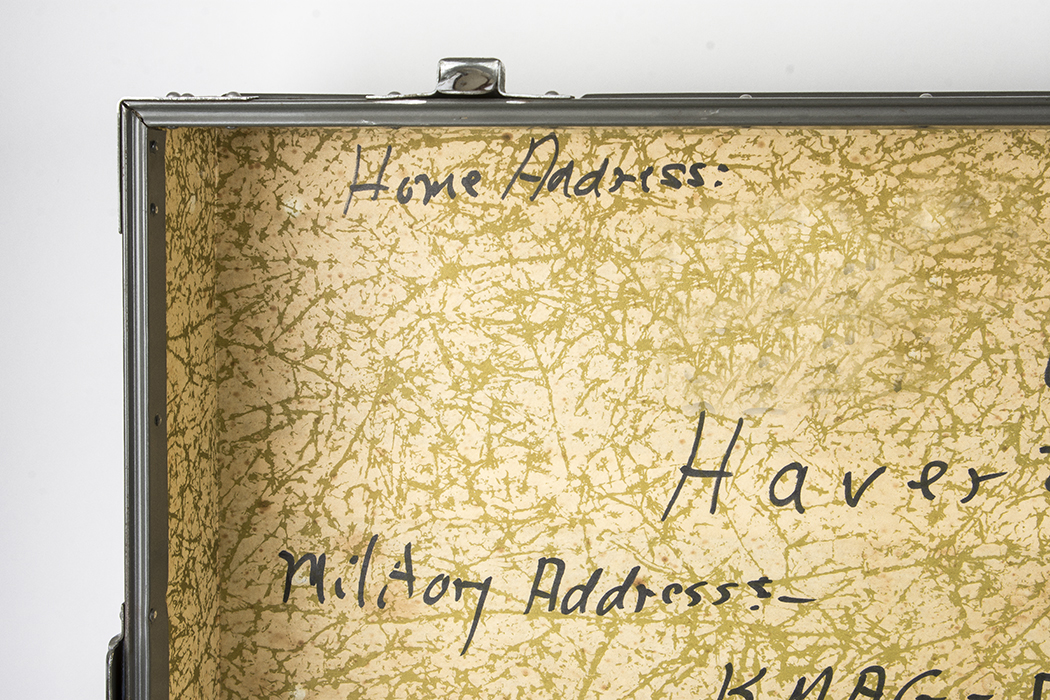 Home Address:
Haver
Military Address:-
KMAG